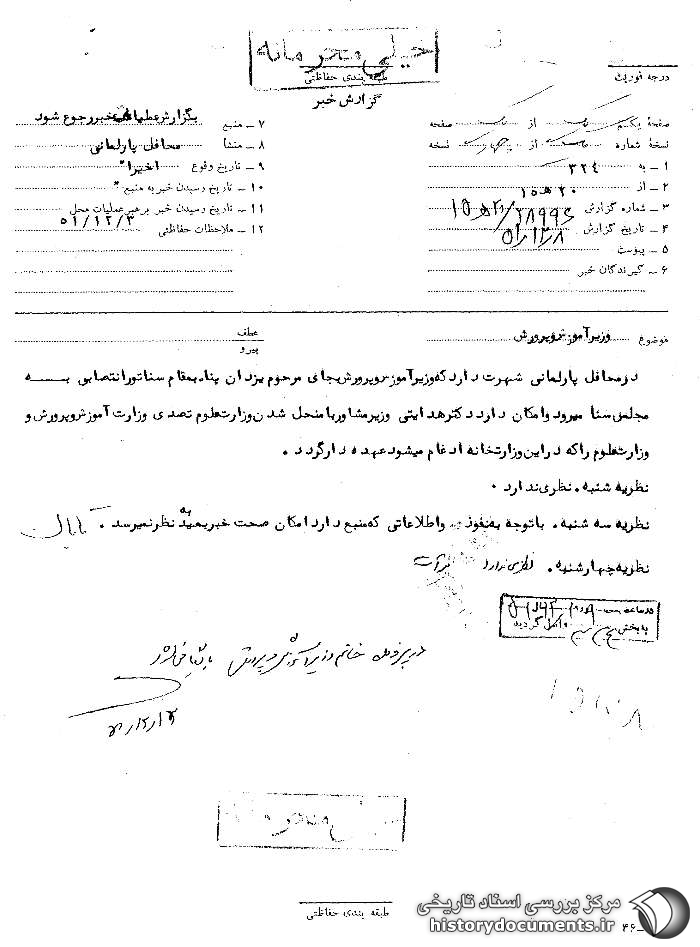 خیلی محرمانه
درجه فوریت
طبقه بندی حفاظتی
گزارش خبر
صفحهٔ یکم یک از یک صفحه
نسخهٔ شماره یک از چهار نسخه
۱ ـ به ۳۲۴
۲ ـ از ۲۰ هـ ۱۵
۳ ـ شماره گزارش
۴ ـ تاریخ گزارش
۵ ـ پیوست
۶ ـ گیرندگان خبر
۷ ـ منبع بگزارش عملیاتی خبر رجوع شود
۸ ـ منشأ محافل پارلمانی
۹ ـ تاریخ وقوع اخیرا"
۱۰ ـ تاریخ رسیدن خبر به منبع "
۱۱ ـ تاریخ رسیدن خبر برهبر عملیات محل ۵۱/۱۲/۳
۱۲ ـ ملاحظات حفاظتی
موضوع وزیر آموزش و پرورش
عطف
پیرو
در محافل پارلمانی شهرت دارد که وزیر آموزش و پرورش بجای مرحوم یزدان پناه بمقام سناتور انتصابی به
مجلس سنا میرود و امکان دارد دکتر هدایتی وزیر مشاور با منحل شدن وزارت علوم تصدی وزارت آموزش و پرورش و
وزارت علوم را که در این وزارتخانه ادغام میشود عهده دار گردد .
نظریه شنبه . نظری ندارد .
نظریه سه شنبه . با توجه به نفوذ و اطلاعاتی که منبع دارد امکان صحت خبر بعید به نظر نمیرسد .
نظریه چهارشنبه . نظری ندارد
در ساعت
به بخش واصل گردید
در پرونده خانم وزیر آموزش و پرورش بایگانی شود
طبقه بندی حفاظتی
مرکز بررسی اسناد تاریخی
historydocuments.ir